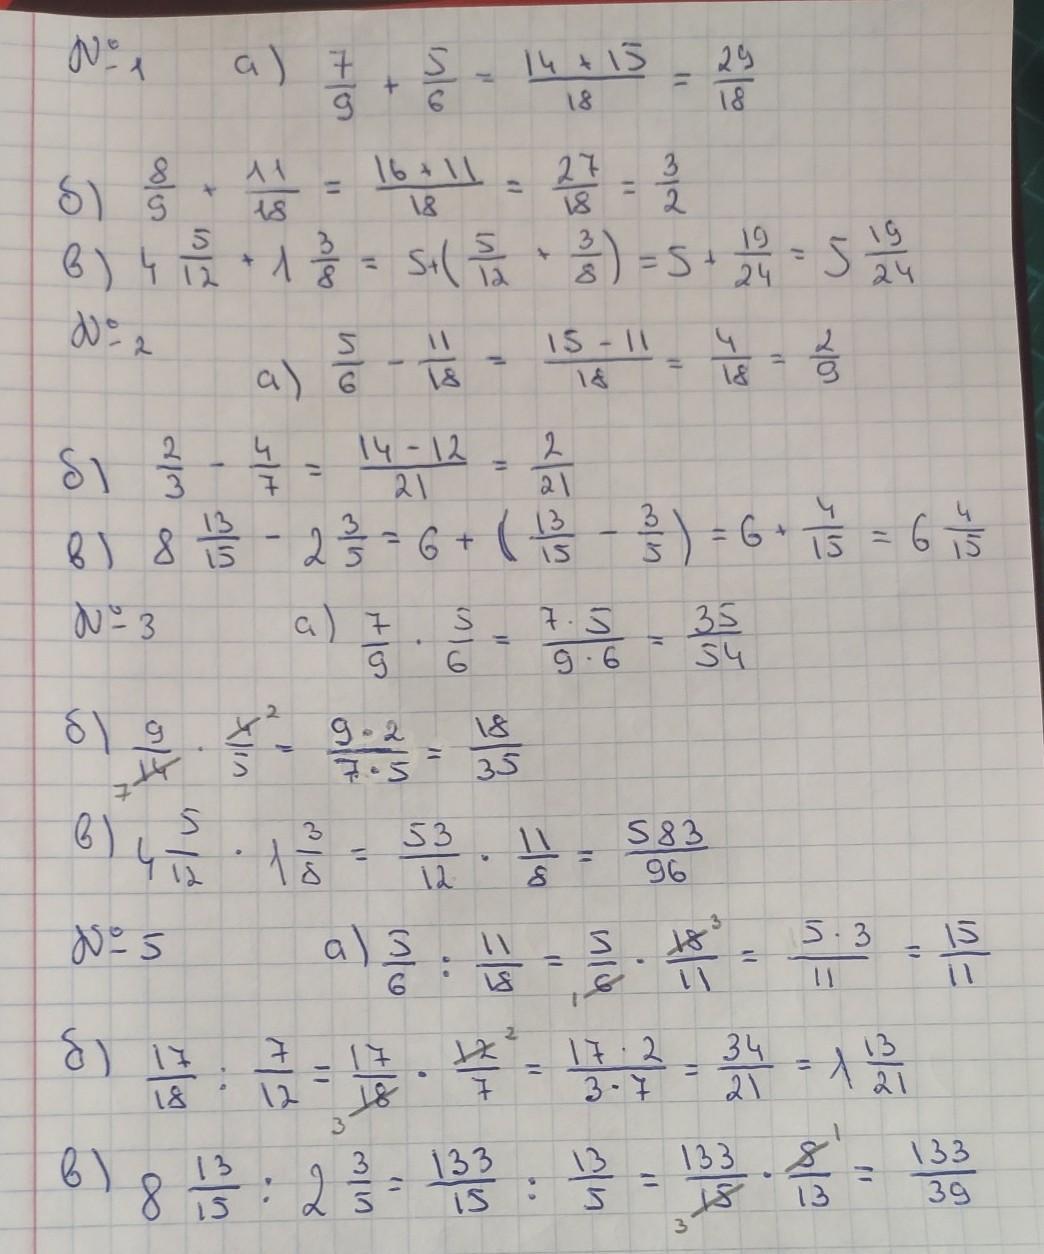 №1 а) 7/9 + 5/6 = (14 + 15)/18 = 29/18
б) 8/9 + 11/18 = (16 + 11)/18 = 27/18 = 3/2
в) 4 5/12 + 1 3/8 = 5+(5/12 + 3/8) = 5 + 19/24 = 5 19/24
№2
а) 5/6 - 11/18 = (15 - 11)/18 = 4/18 = 2/9
б) 2/3 - 4/7 = (14 - 12)/21 = 2/21
в) 8 13/15 - 2 3/5 = 6 + (13/15 - 3/5) = 6 + 4/15 = 6 4/15
№3 а) 7/9 · 5/6 = (7 · 5)/(9 · 6) = 35/54
б) 9/14 7 · 4/5 2 = (9 · 2)/(7 · 5) = 18/35
в) 4 5/12 · 1 3/8 = 53/12 · 11/8 = 583/96
№5 а) 5/6 : 11/18 = 5/6 1 · 18/11 3 = (5 · 3)/11 = 15/11
б) 17/18 : 7/12 = 17/18 3 · 12/7 2 = (17 · 2)/(3 · 7) = 34/21 = 1 13/21
в) 8 13/15 : 2 3/5 = 133/15 : 13/5 = 133/15 3 · 5/13 1 = 133/39